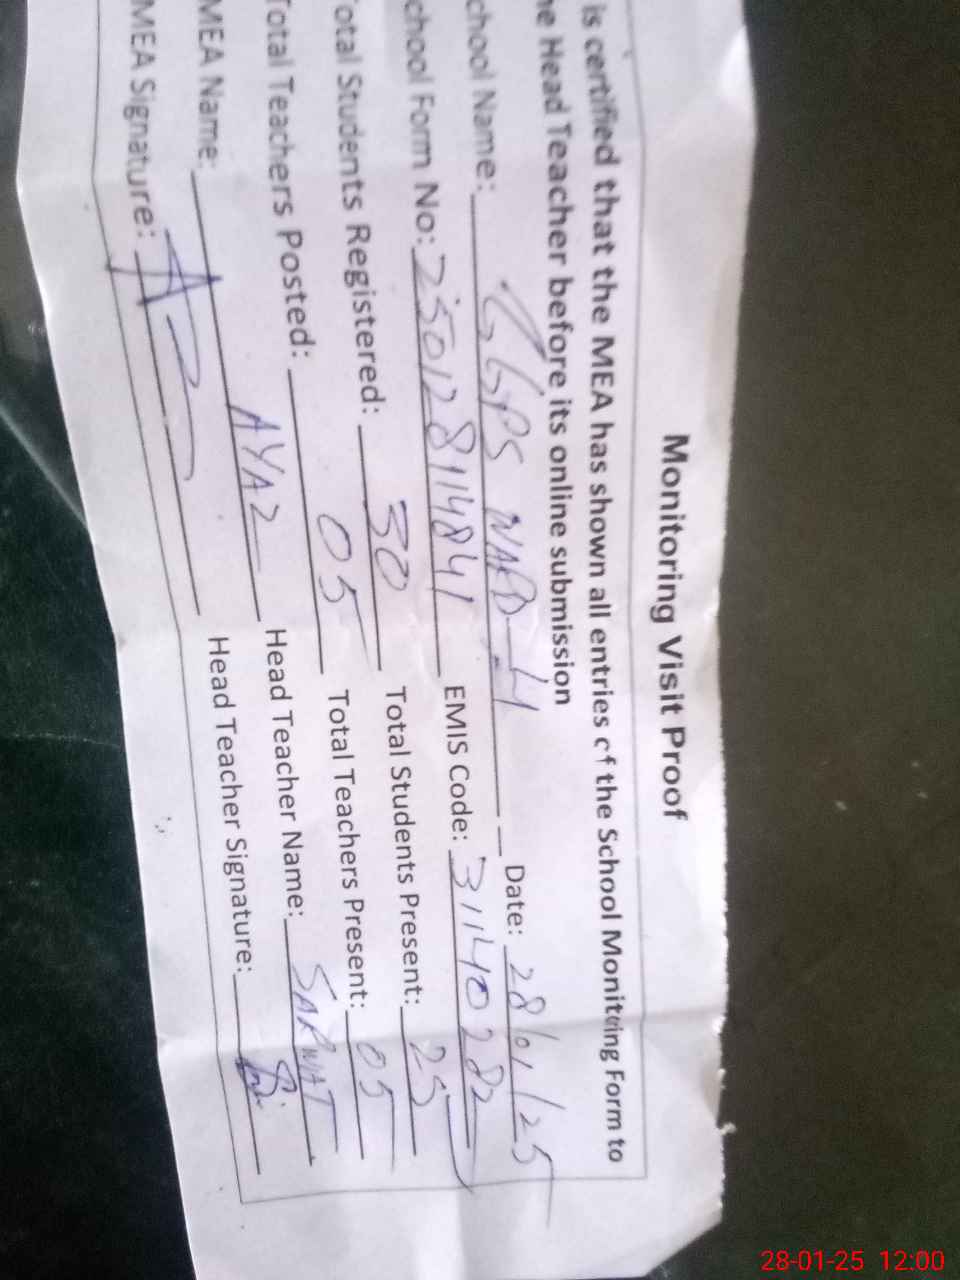 Monitoring Visit Proof
is certified that the MEA has shown all entries of the School Monitoring Form to
he Head Teacher before its online submission
chool Name: GGPS NARD-H Date: 28/01/25
chool Form No: 250128114841 EMIS Code: 31140282
otal Students Registered: 30 Total Students Present: 25
Total Teachers Posted: 05 Total Teachers Present: 05
MEA Name: AYAZ Head Teacher Name: SARWAT
MEA Signature: Head Teacher Signature:
28-01-25 12:00